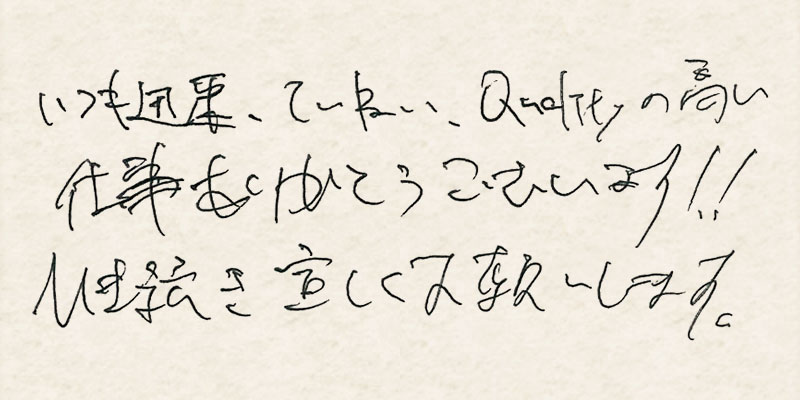 いつも迅速、ていねい、Qualityの高い
仕事ありがとうございます!!
引き続き宜しくお願いします。